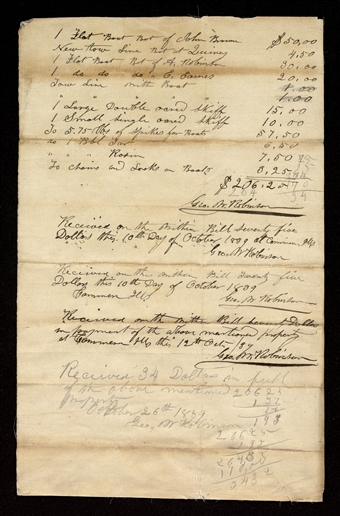 1 Flat Boat Bot of John Brown $50,00
New Tow Line Bot at Quincy 4,50
1 Flat Boat Bot of A. Robinson 30,00
1 do do do C. Eames 20,00
Tow Line with Boat 1,00
1 Large Double oared skiff 15,00
1 Small single oared skiff 10,00
To 5.75 lbs of Spikes for Boats 57,50
to 1 Bbl Tar 6,50
" " " Rosin 7,50
To chains and Locks on Boats 3,25
$206,25
Geo. W. Robinson
Received on the within Bill Seventy five
Dollars this 10th Day of October 1839 at Commerce Ills
Geo W Robinson
Received on the within Bill Twenty five
Dollars this 10th Day of October 1839
Commerce Ills Geo. W Robinson
Received on the with Bill Dollars
in payment of the above mentioned property
at Commerce Ills this 12th Oct. 39
Geo. W. Robinson
Received 34 Dollars in full
of the above mentioned 206 25
Property
October 26th 1839 198
Geo. W Robinson
206 25